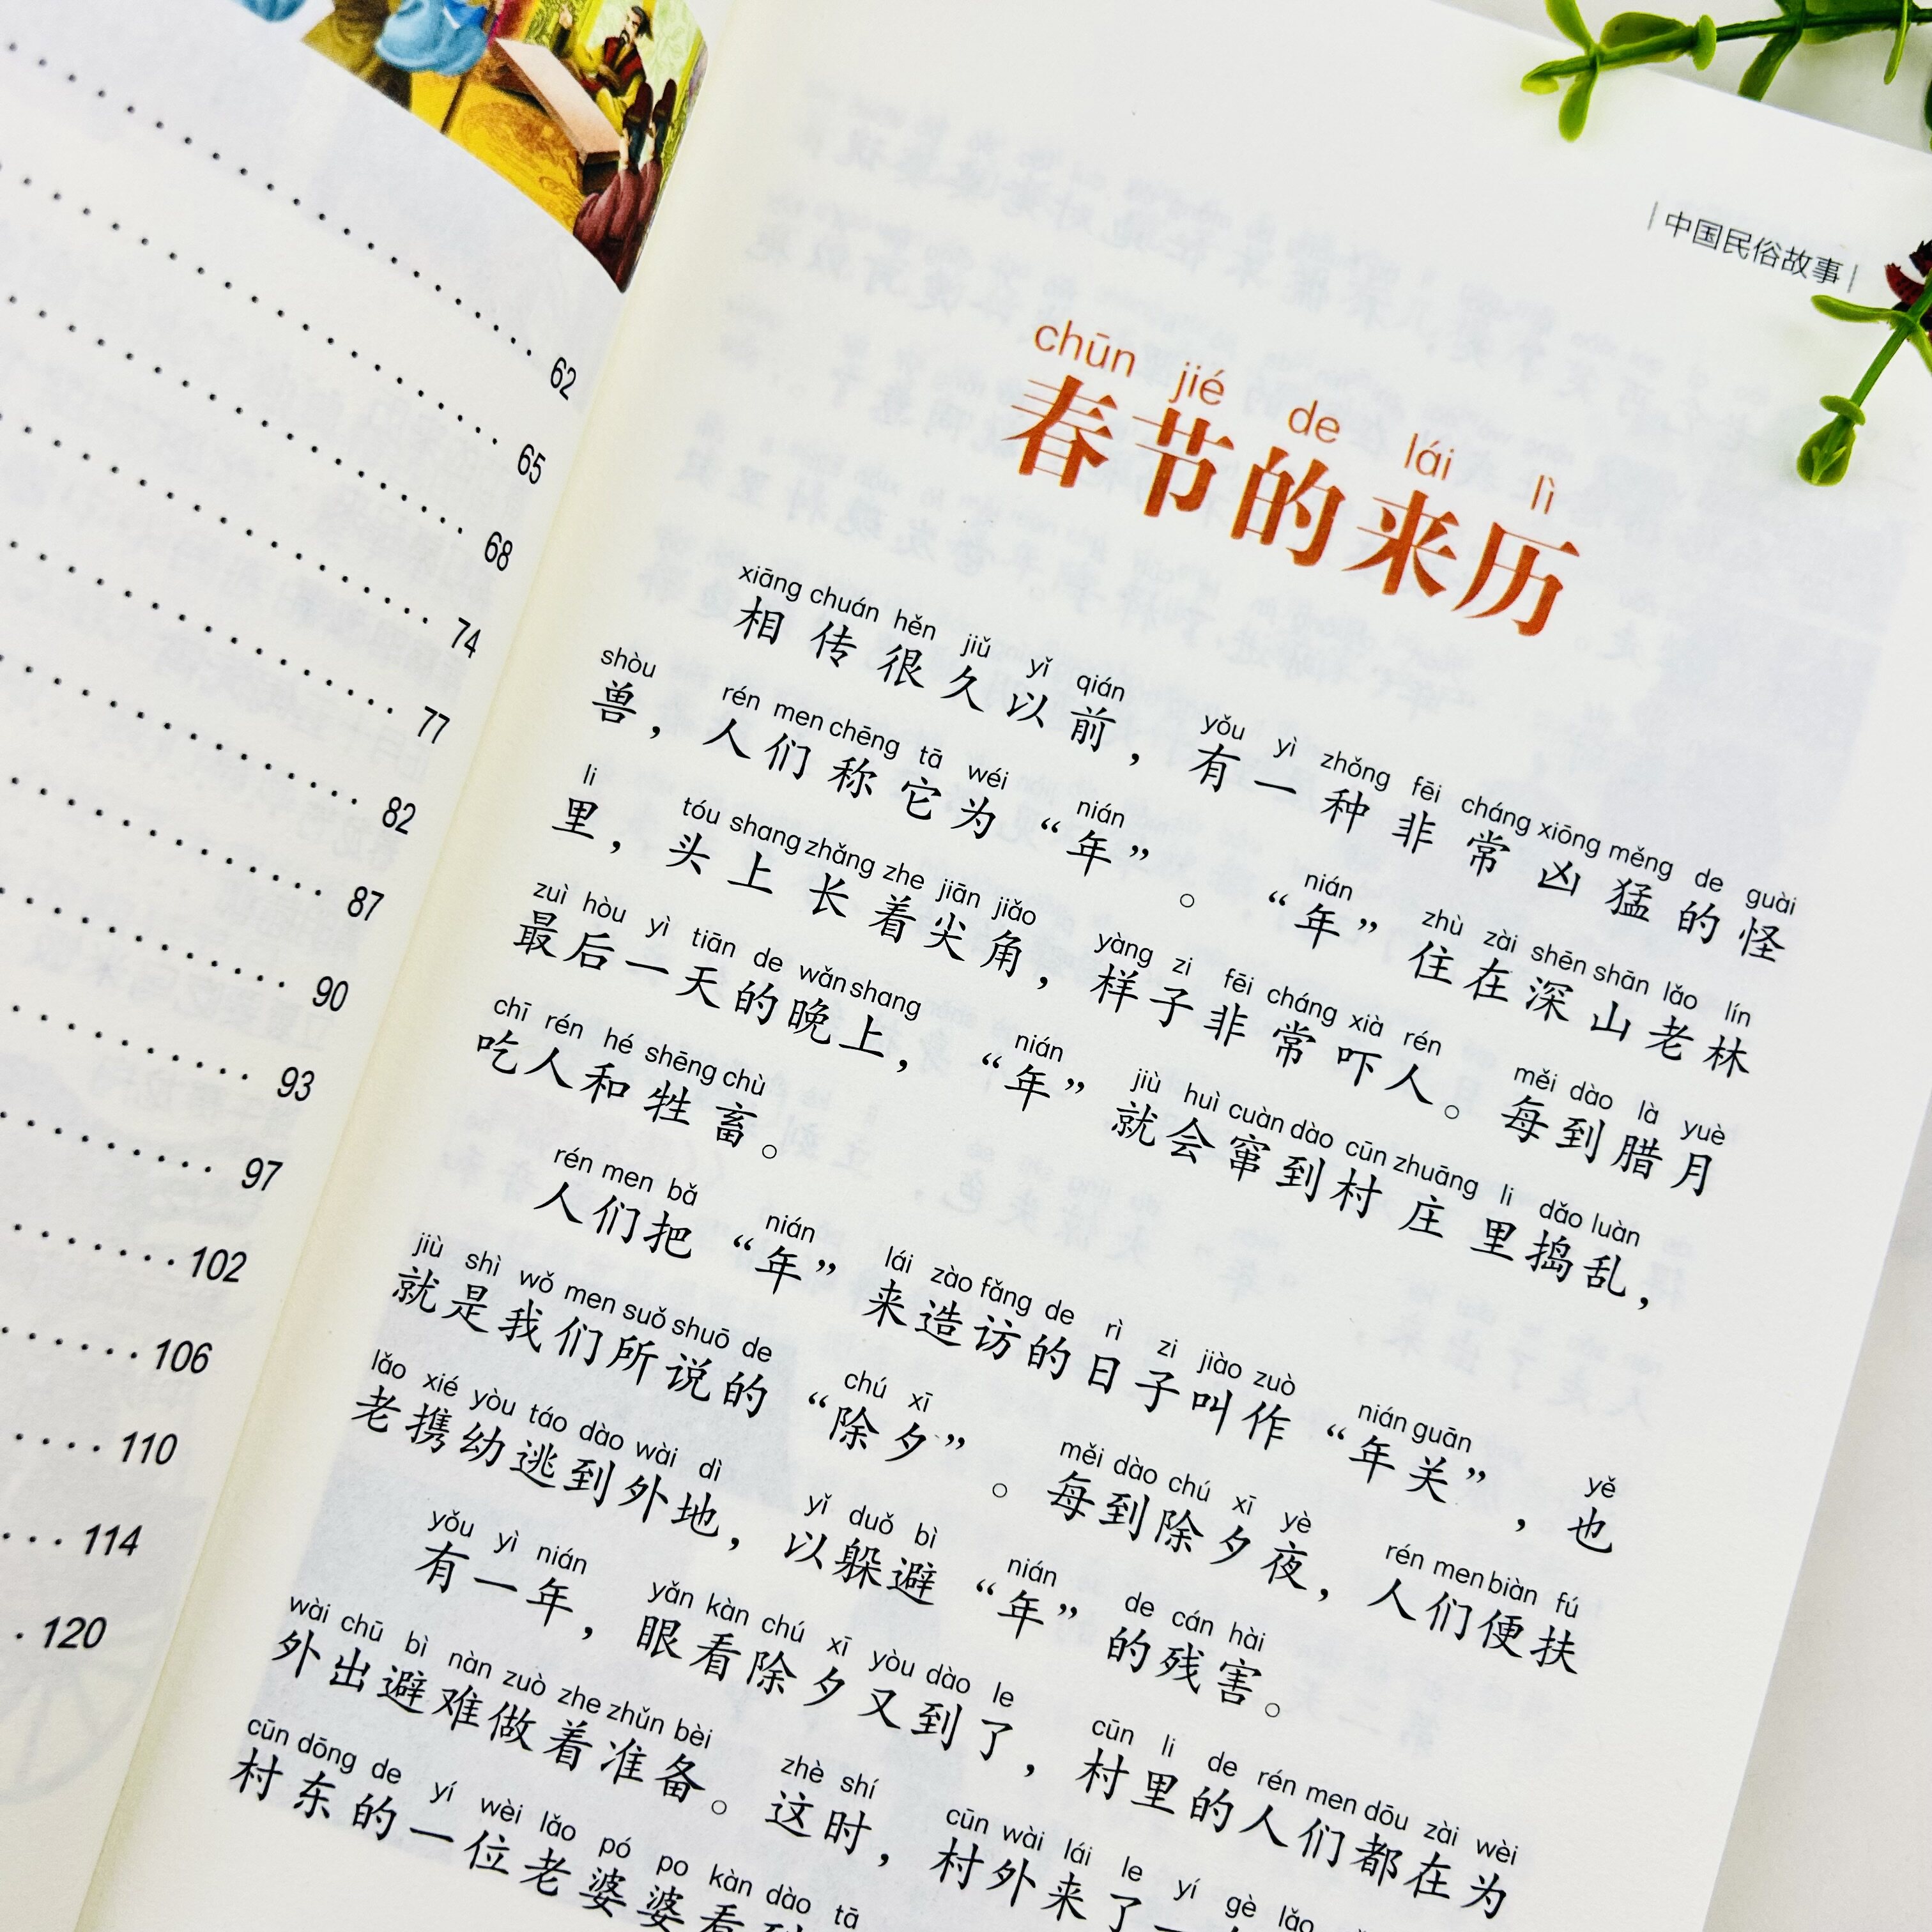 62
65
68
74
77
82
87
90
93
97
102
106
110
114
120
中国民俗故事
chūn jié de lái lì
春节的来历
xiāng chuán hěn jiǔ yǐ qián yǒu yì zhǒng fēi cháng xiōng měng de guài
相传很久以前，有一种非常凶猛的怪
shòu rén men chēng tā wéi nián nián zhù zài shēn shān lǎo lín
兽，人们称它为“年”。“年”住在深山老林
li tóu shang zhǎng zhe jiān jiǎo yàng zi fēi cháng xià rén měi dào là yuè
里，头上长着尖角，样子非常吓人。每到腊月
zuì hòu yì tiān de wǎn shang nián jiù huì cuàn dào cūn zhuāng li dǎo luàn
最后一天的晚上，“年”就会窜到村庄里捣乱，
chī rén hé shēng chù
吃人和牲畜。
rén men bǎ nián lái zào fǎng de rì zi jiào zuò nián guān yě
人们把“年”来造访的日子叫作“年关”，也
jiù shì wǒ men suǒ shuō de chú xī měi dào chú xī yè rén men biàn fú
就是我们所说的“除夕”。每到除夕夜，人们便扶
lǎo xié yòu táo dào wài dì yǐ duǒ bì nián de cán hài
老携幼逃到外地，以躲避“年”的残害。
yǒu yì nián yǎn kàn chú xī yòu dào le cūn li de rén men dōu zài wèi
有一年，眼看除夕又到了，村里的人们都在为
wài chū bì nàn zuò zhe zhǔn bèi zhè shí cūn wài lái le yí gè lǎo
外出避难做着准备。这时，村外来了一
cūn dōng de yí wèi lǎo pó po kàn dào tā
村东的一位老婆婆看到